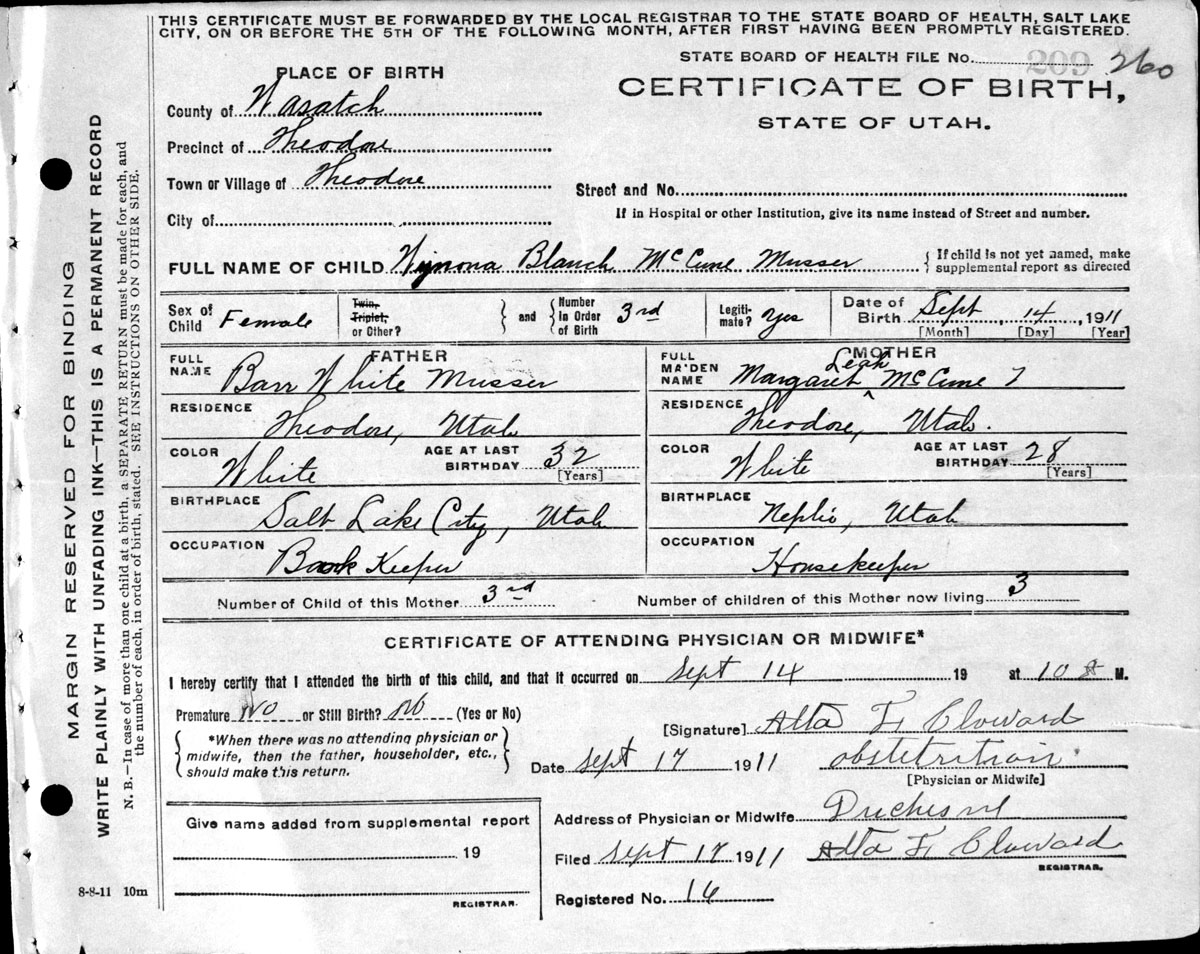 THIS CERTIFICATE MUST BE FORWARDED BY THE LOCAL REGISTRAR TO THE STATE BOARD OF HEALTH, SALT LAKE
CITY, ON OR BEFORE THE 5TH OF THE FOLLOWING MONTH, AFTER FIRST HAVING BEEN PROMPTLY REGISTERED.
STATE BOARD OF HEALTH FILE No. 209 260
PLACE OF BIRTH
CERTIFICATE OF BIRTH,
STATE OF UTAH.
County of Wasatch
Precinct of Theodore
Town or Village of Theodore
Street and No.
City of
If in Hospital or other Institution, give its name instead of Street and number.
FULL NAME OF CHILD Wynona Blanch McCune Musser
If child is not yet named, make
supplemental report as directed
Sex of Child Female
Twin, Triplet, or Other?
and
Number In Order of Birth 3rd
Legitimate? Yes
Date of Birth Sept 14, 1911
[Month] [Day] [Year]
FATHER
FULL NAME Barr White Musser
RESIDENCE Theodore, Utah
COLOR White
AGE AT LAST BIRTHDAY 32
[Years]
BIRTHPLACE Salt Lake City, Utah
OCCUPATION Book Keeper
MOTHER
FULL MAIDEN NAME Margaret Leah McCune
RESIDENCE Theodore, Utah.
COLOR White
AGE AT LAST BIRTHDAY 28
[Years]
BIRTHPLACE Nephi, Utah
OCCUPATION Housekeeper
Number of Child of this Mother 3rd
Number of children of this Mother now living 3
CERTIFICATE OF ATTENDING PHYSICIAN OR MIDWIFE*
I hereby certify that I attended the birth of this child, and that it occurred on Sept 14 19 at 10 M.
Premature No or Still Birth? No (Yes or No)
*When there was no attending physician or
midwife, then the father, householder, etc.,
should make this return.
[Signature] Alta F. Cloward
Date Sept 17 1911 obstetritian
[Physician or Midwife]
Give name added from supplemental report
19
REGISTRAR.
Address of Physician or Midwife Duchesne
Filed Sept 17 1911 Alta F. Cloward
REGISTRAR.
Registered No. 14
8-8-11 10m
MARGIN RESERVED FOR BINDING
WRITE PLAINLY WITH UNFADING INK—THIS IS A PERMANENT RECORD
N. B.—In case of more than one child at a birth, a SEPARATE RETURN must be made for each, and
the number of each, in order of birth, stated. SEE INSTRUCTIONS ON OTHER SIDE.